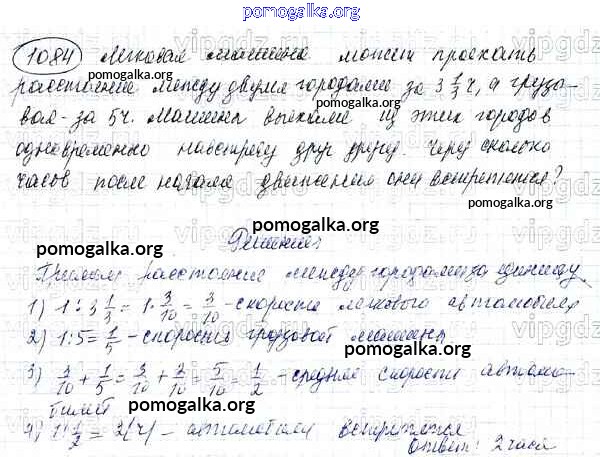 pomogalka.org
1084 Легковая машина может проехать
pomogalka.org
расстояние между двумя городами за 3 1/3 ч, а грузо-
вая - за 5ч. Машины выехали из этих городов
одновременно навстречу друг другу. Через сколько
часов после начала движения они встретятся?
pomogalka.org
Решение
pomogalka.org pomogalka.org
Примем расстояние между городами за единицу
1) 1 : 3 1/3 = 1 · 3/10 = 3/10 - скорость легкового автомобиля
2) 1:5 = 1/5 - скорость грузовой машины
pomogalka.org
3) 3/10 + 1/5 = 3/10 + 2/10 = 5/10 = 1/2 - средняя скорость автомо-
билей pomogalka.org
4) 1 : 1/2 = 2(ч) - автомобили встретятся
Ответ: 2 часа
pomogalka.org